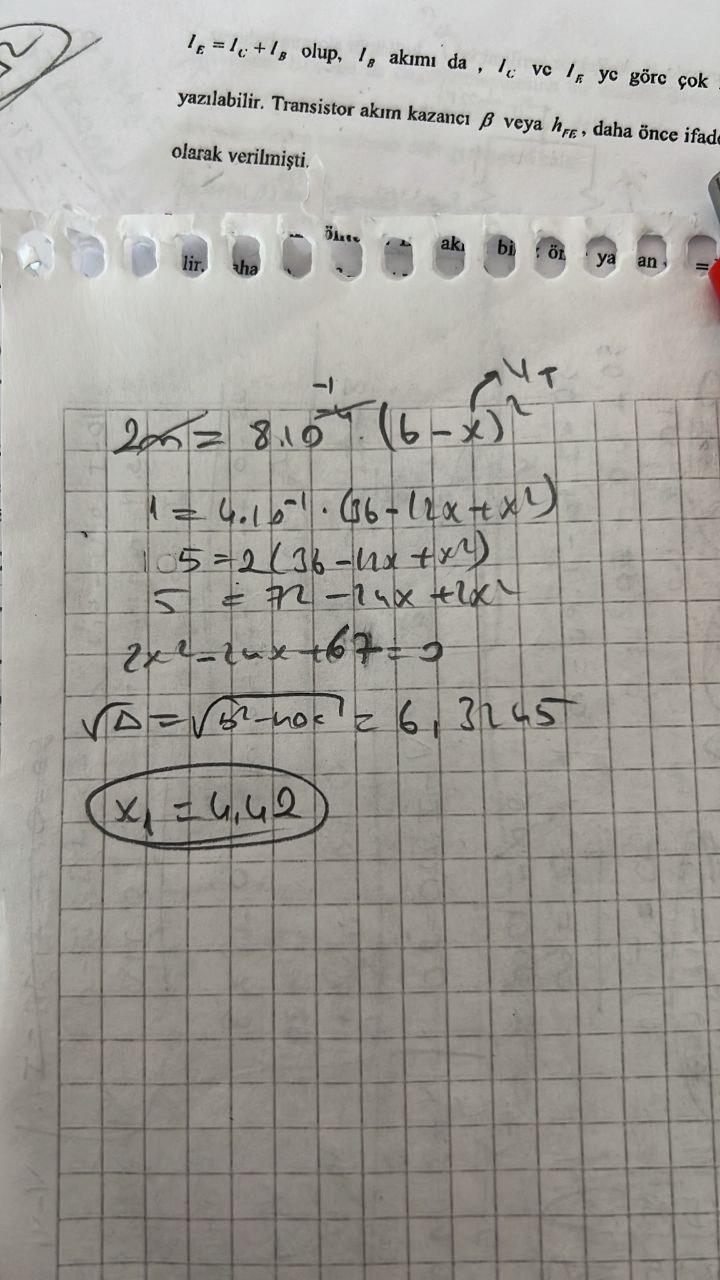 I_E = I_C + I_B olup, I_B akımı da , I_C ve I_E ye göre çok
yazılabilir. Transistor akım kazancı β veya h_FE, daha önce ifade
olarak verilmişti.
lir. aha akı bi ön ya an =
-1
V_T
2m = 8.10^-4 . (6-x)^2
1 = 4.10^-1 . (36-12x+x^2)
5 = 2(36-12x+x^2)
5 = 72-24x+2x^2
2x^2-24x+67=0
√Δ = √b^2-4ac = 6,3245
x_1 = 4,42